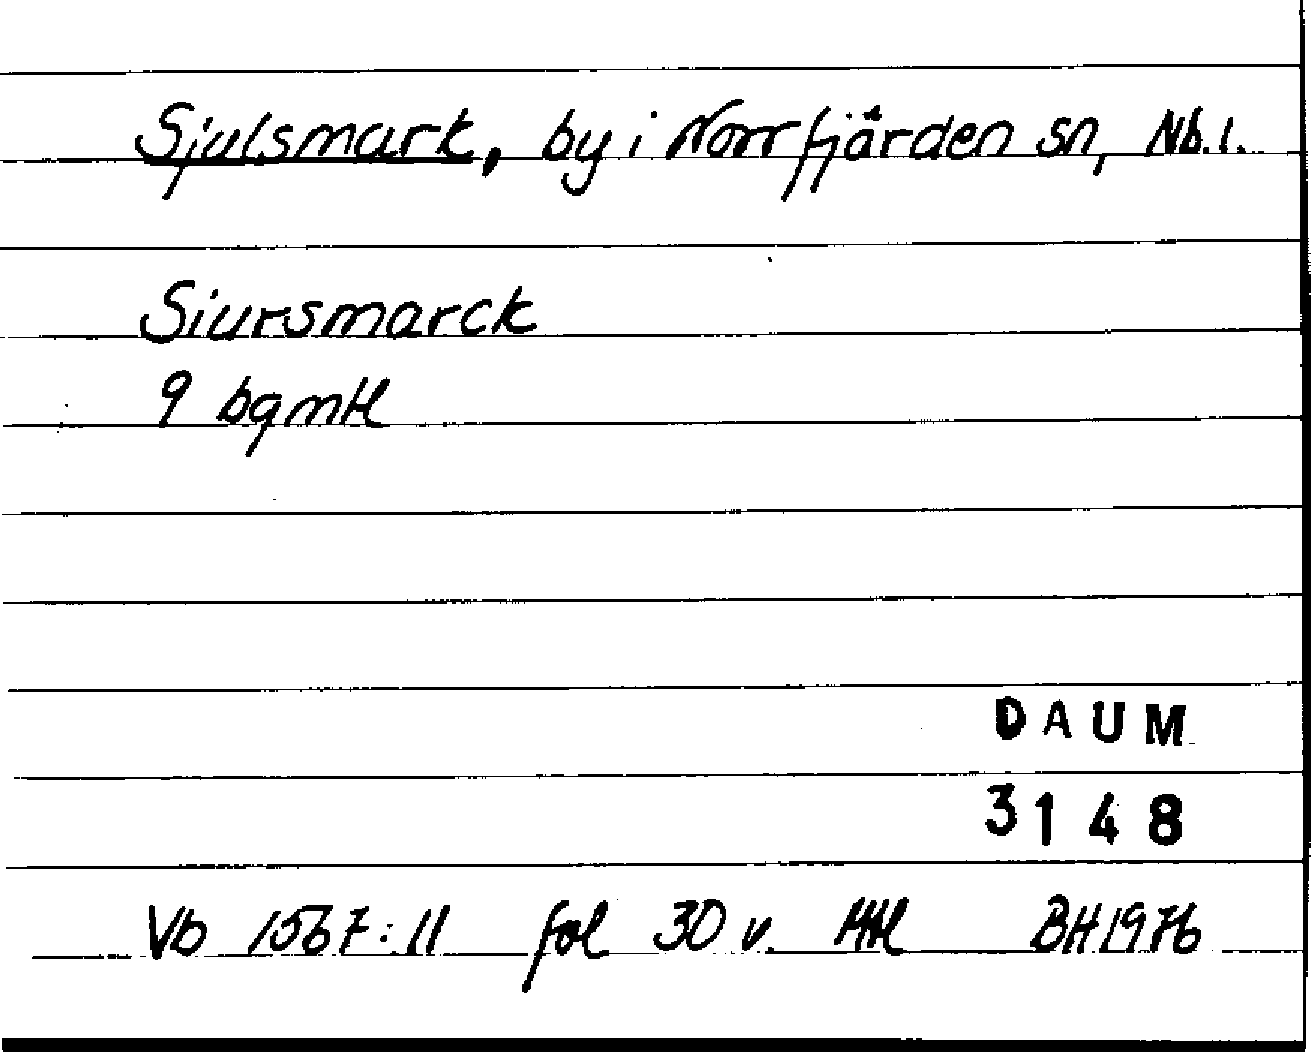 Sjulsmark, by i Norrfjärden sn, Nb.l.
Siursmarck
9 bgmtl
DAUM
3148
Vb 1567:11 fol 30 v. Mtl BH 1976